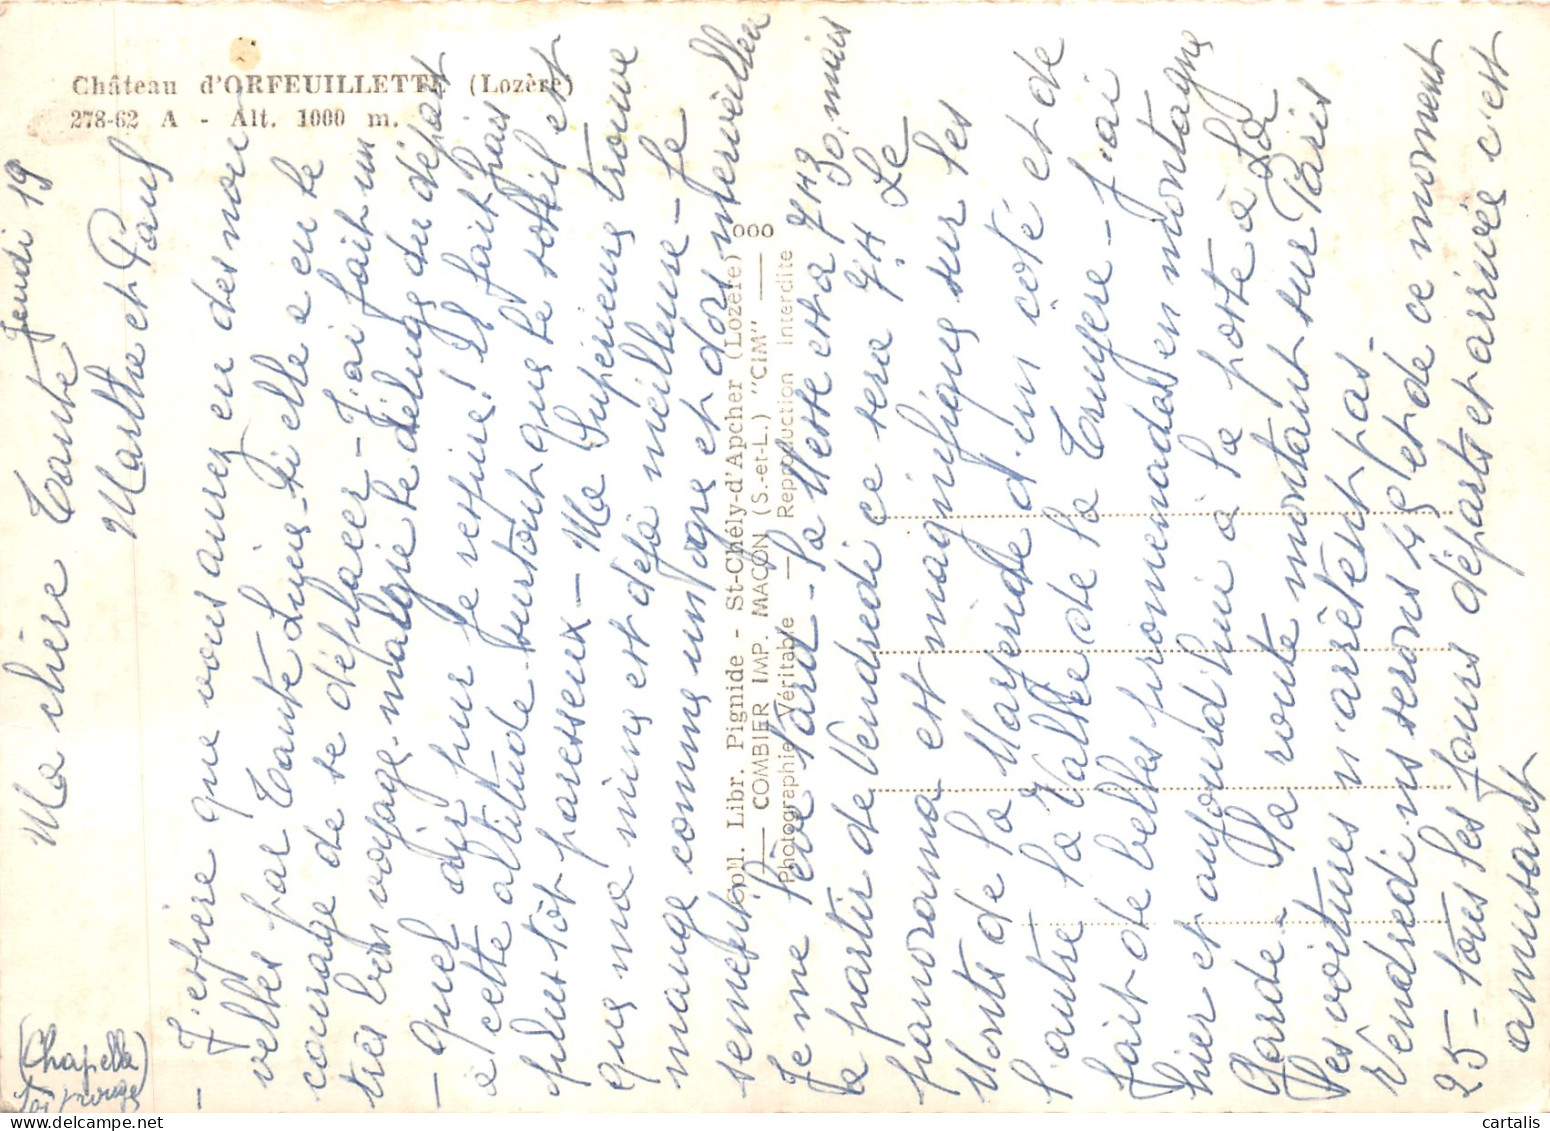 Château d'ORFEUILLETTE (Lozère)
278-62 A - Alt. 1000 m.
Coll. Libr. Pignide - St-Chély-d'Apcher (Lozère) 000
COMBIER IMP. MACON (S.-et-L.) "CIM"
Photographie Véritable — Reproduction Interdite
(Chapelle
Jeudi 19
Ma chère Tante
Marthe et Paul
- J'espère que vous aurez eu des nou
velles par Tante Lucie - Si elle a eu le
courage de se déplacer - J'ai fait un
très bon voyage malgré le déluge du départ
- quel air pur je respire ! Il fait frais
a cette altitude surtout que le soleil est
plustôt paresseux - Ma Supérieure trouve
que ma mine est déjà meilleure - Je
mange comme un ogre et dors merveilleu
sement.
Je me lève tard - la Messe est a 7H30, mais
a partir de Vendredi ce sera 9H. Le
panorama est magnifique sur les
Monts de la Margeride d'un coté et de
l'autre la Vallée de la Truyère - J'ai
fait de belles promenades en montagne
hier et aujourd'hui a la poste à La
Garde - La route montant sur Paris
les voitures n'arrêtent pas -
Vendredi ns serons 45 et de ce moment
25 - tous les jours départs et arrivée c'est
amusant